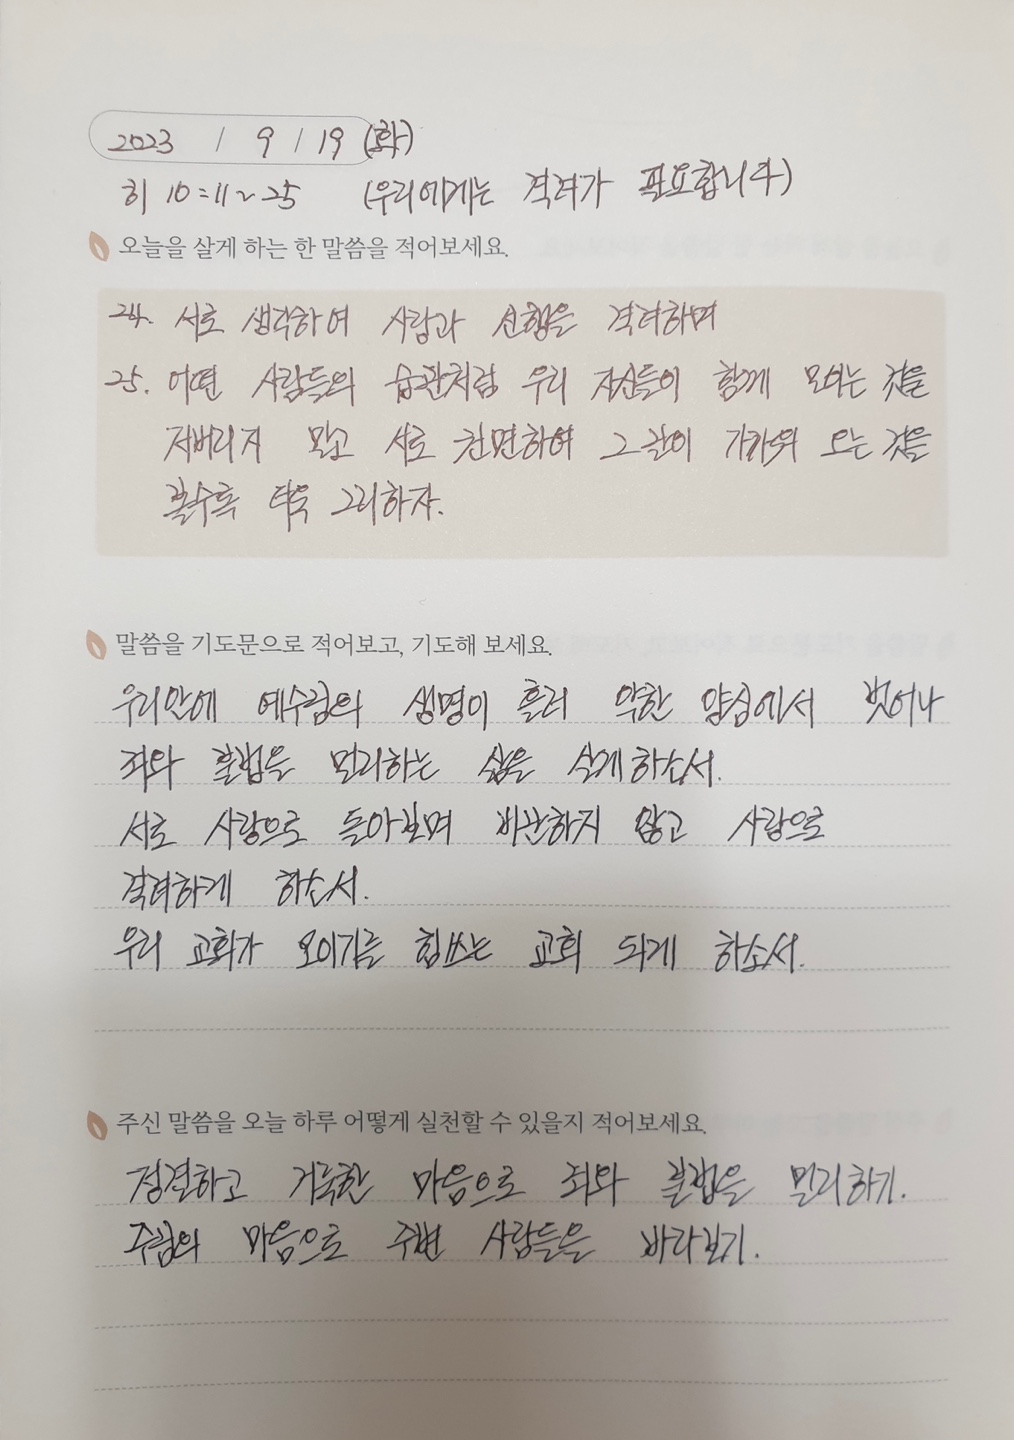 2023 / 9 / 19 (화)
히 10:11~25 (우리에게는 격려가 필요합니다)
오늘을 살게 하는 한 말씀을 적어보세요.
24. 서로 생각하여 사랑과 선행을 격려하며
25. 어떤 사람들의 습관처럼 우리 자신들이 함께 모이는 것을
저버리지 말고 서로 권면하여 그 날이 가까워 오는 것을
볼수록 더욱 그리하자.
말씀을 기도문으로 적어보고, 기도해 보세요.
우리안에 예수님의 생명이 흘러 악한 양심에서 벗어나
죄와 불법을 멀리하는 삶을 살게하소서.
서로 사랑으로 돌아보며 비난하지 않고 사랑으로
격려하게 하소서.
우리 교회가 모이기를 힘쓰는 교회 되게 하소서.
주신 말씀을 오늘 하루 어떻게 실천할 수 있을지 적어보세요.
정결하고 거룩한 마음으로 죄와 불법을 멀리하기.
주님의 마음으로 주변 사람들을 바라보기.